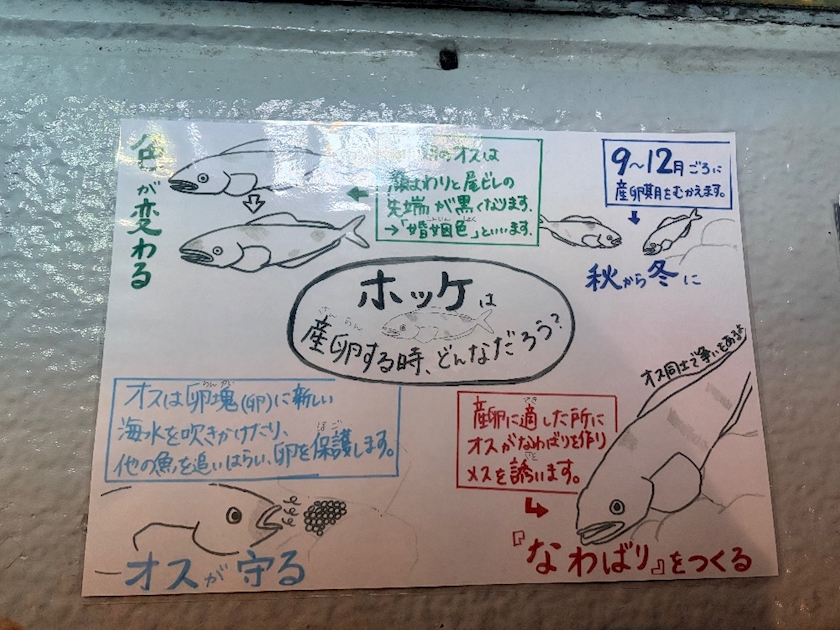 色が変わる
のオスは
顔まわりと尾ビレの
先端が黒くなります。
→「婚姻色」といいます。
こんいんしょく
9〜12月ごろに
産卵期をむかえます。
秋から冬に
ホッケは
さんらん
産卵する時、どんなだろう?
らんかい
オスは卵塊(卵)に新しい
海水を吹きかけたり、
ほご
他の魚を追いはらい、卵を保護します。
オスが守る
てき
産卵に適した所に
オスがなわばりを作り
さそ
メスを誘います。
『なわばり』をつくる
オス同士で争いもあるよ